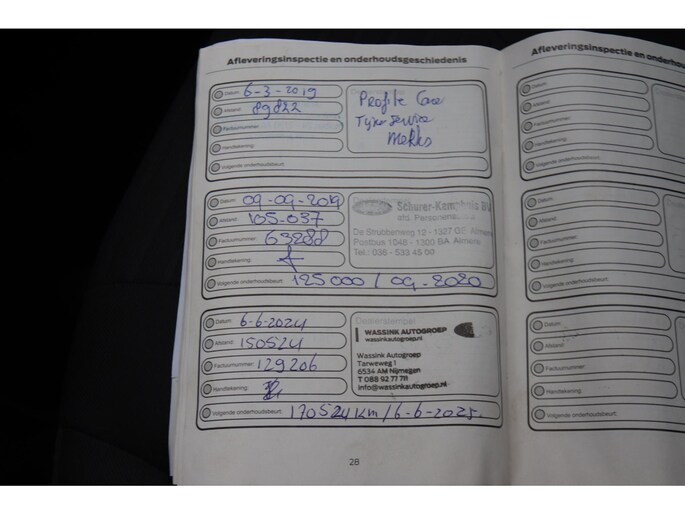 Afleveringsinspectie en onderhoudsgeschiedenis
Datum: 6-3-2019
Afstand: 89822
Factuurnummer:
Handtekening:
Volgende onderhoudsbeurt:
Profile Car
Tyre service
Datum: 09-09-2019
Afstand: 105-037
Factuurnummer: 63288
Handtekening:
Volgende onderhoudsbeurt: 125000 / 09-2020
afd.
De Strubbenweg 12 - 1327 GE Almere
Postbus 1048 - 1300 BA Almere
Tel.: 036 - 533 45 00
Datum: 6-6-2024
Afstand: 150524
Factuurnummer: 129206
Handtekening:
Volgende onderhoudsbeurt: 170524km/6-6-2025.
WASSINK AUTOGROEP
wassinkautogroep.nl
Wassink Autogroep
Tarweweg 1
6534 AM Nijmegen
T 088 92 77 711
info@wassinkautogroep.nl
28
Afleveringsinspectie en onderho
Datum:
Afstand:
Factuurnummer:
Handtekening:
Volgende onderhoudsbeurt:
Datum:
Afstand:
Factuurnummer:
Handtekening:
Volgende onderhoudsbeurt:
Datum:
Afstand:
Factuurnummer:
Handtekening:
Volgende onderhoudsbeurt: